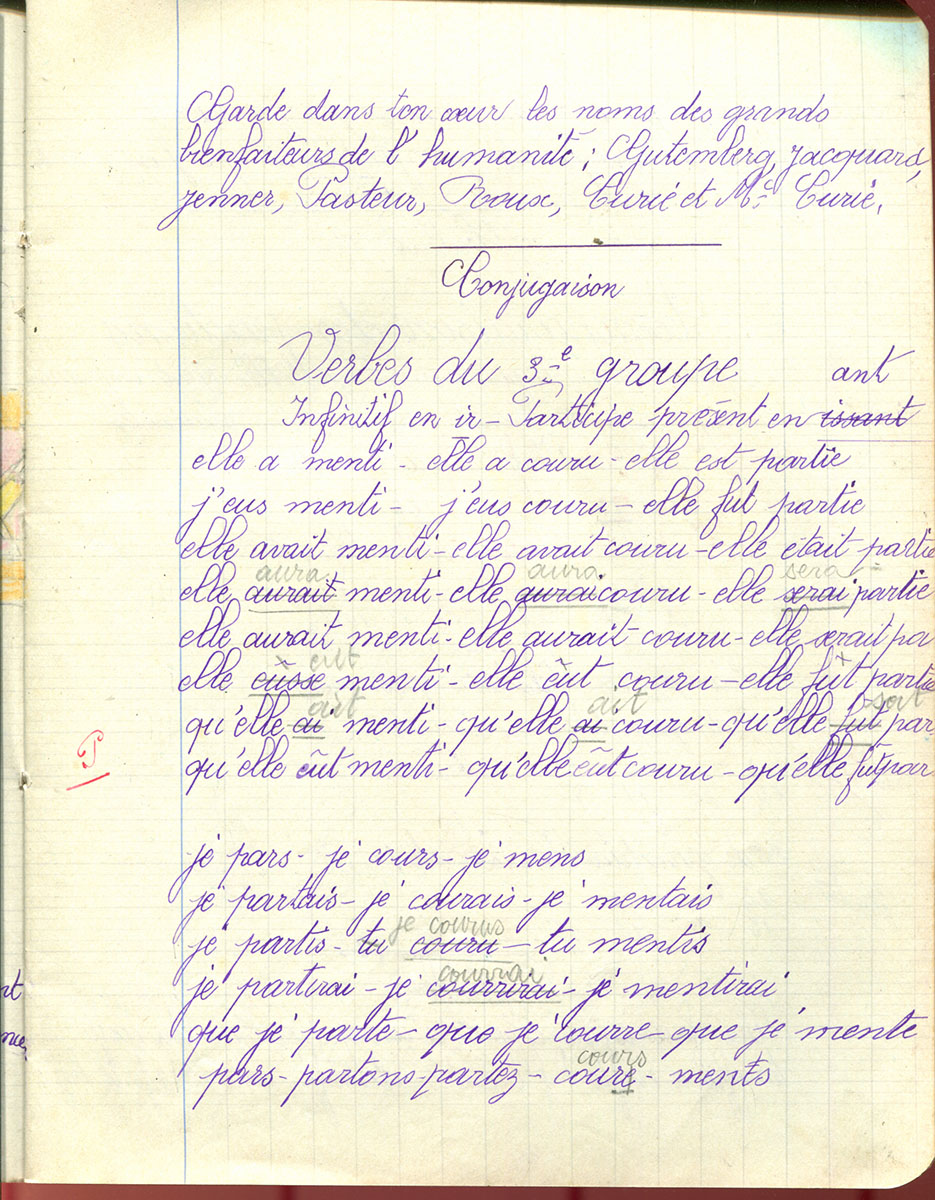 Garde dans ton cœur les noms des grands
bienfaiteurs de l'humanité ; Gutemberg, Jacquard,
Jenner, Pasteur, Roux, Curie et Me Curie.
Conjugaison
Verbes du 3e groupe
ant
Infinitif en ir - Participe présent en issant
elle a menti - elle a couru - elle est partie
j'eus menti - j'eus couru - elle fut partie
elle avait menti - elle avait couru - elle était partie
aura aura sera
elle aurait menti - elle aurai couru - elle serai partie
elle aurait menti - elle aurait couru - elle serait pa
eut
elle eusse menti - elle eût couru - elle fut partie
ait ait soit
qu'elle ai menti - qu'elle ai couru - qu'elle fut par
qu'elle eût menti - qu'elle eût couru - qu'elle fût par
je pars - je cours - je mens
je partais - je courais - je mentais
je courus
je partis - tu couru - tu mentis
courrai
je partirai - je courrirai - je mentirai
que je parte - que je courre - que je mente
cours
pars - partons - partez - coure - ments